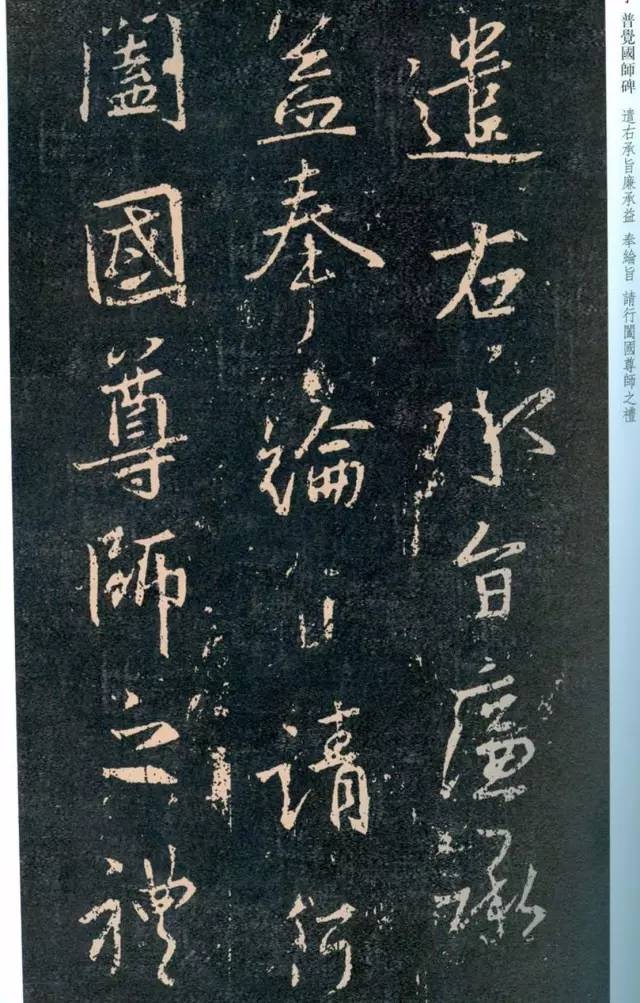 遣右承旨廉承
益奉綸旨請行
闔國尊師之禮
普覺國師碑 遣右承旨廉承益 奉綸旨 請行闔國尊師之禮